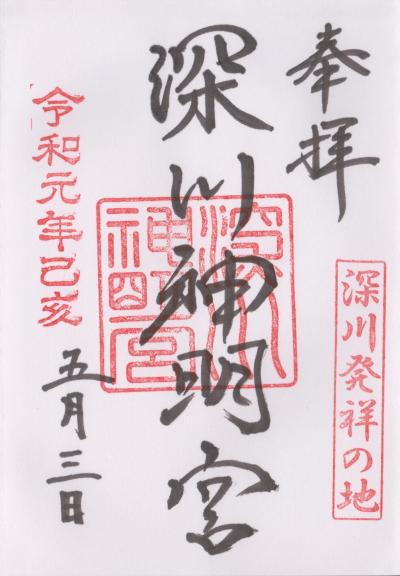 奉拝
深川発祥の地
深川神明宮
深川神明宮
令和元年己亥
五月三日